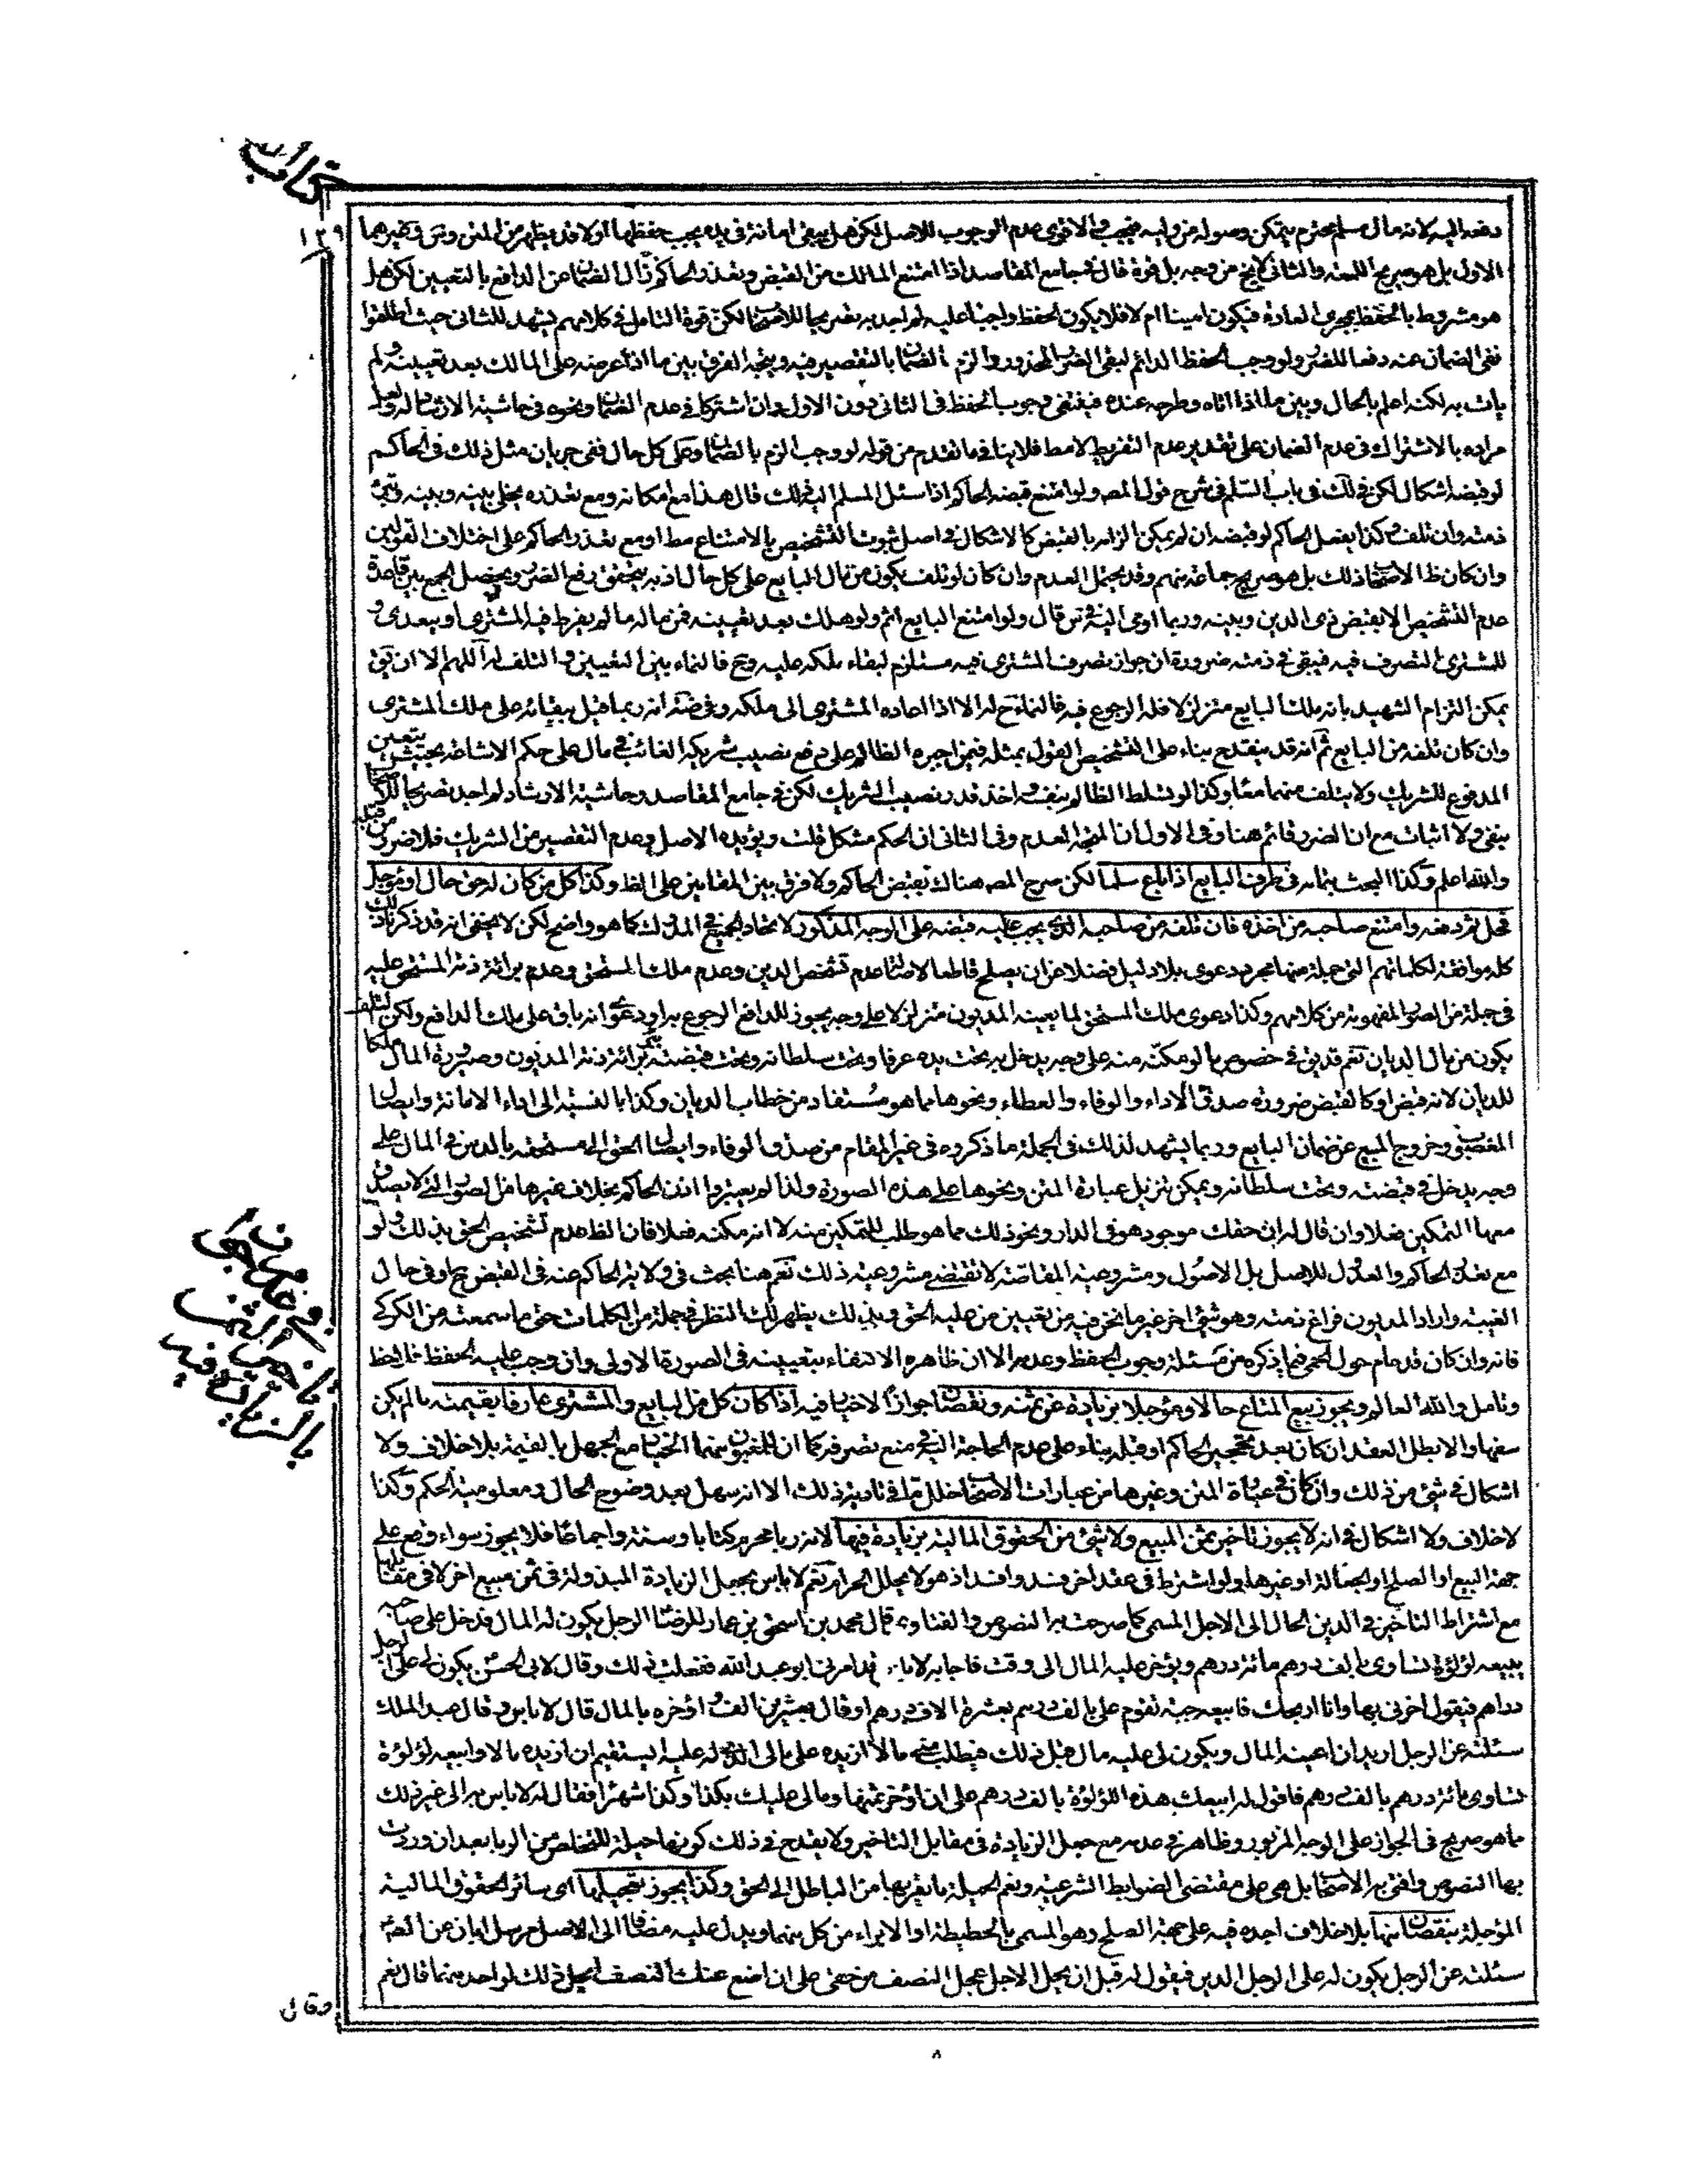 كتاب
١٣٩
دفعه اليه لانه مال مسلم محترم يتمكن وصوله من وليه فيجب والاقوى عدم الوجوب للاصل لكن هل يبقى امانة فى يده يجب حفظها اولا قد يظهر من المتن وس وغيرهما
الاول بل هو صريح اللمعة والثانى لا يخ من وجه بل قوة قال فى جامع المقاصد اذا امتنع المالك من القبض وتعذر الحاكم زال الضمان عن الدافع بالتعيين لكن هل
هو مشروط بالحفظ بمجرى العادة فيكون امينا ام لا فلا يكون الحفظ واجبا عليه لم اجد به تصريحا للاصحاب لكن قوة التامل فى كلامهم يشهد للثانى حيث اطلقوا
نفى الضمان عنه دفعا للضرر ولو وجب الحفظ الدائم لبقى الضرر المحذور والزم الضمان بالتقصير فيه ويتجه الفرق بين ما اذا عرضه على المالك بعد تعيينه ولم
يات به لكنه اعلم بالحال وبين ما اذا اتاه وطرحه عنده فينتفى وجوب الحفظ فى الثانى دون الاول وان اشتركا فى عدم الضمان ونحوه فى حاشية الارشاد له ولعل
مراده بالاشتراك فى عدم الضمان على تقدير عدم التفريط لا مط فلا ينافى ما تقدم من قوله لو وجب الزم بالضمان وعلى كل حال ففى جريان مثل ذلك فى الحاكم
لو قبضه اشكال لكن فى لك فى باب السلم فى شرح قول المصه ولو امتنع قبضه الحاكم اذا سئل المسلم اليه ذلك قال هذا مع امكانه ومع تعذره يخلى بينه وبينه وتبرئ
ذمته وان تلف وكذا يفعل الحاكم لو قبضه ان لم يمكن الزامه بالقبض كالاشكال فى اصل ثبوت التشخيص بالامتناع مط او مع تعذر الحاكم على اختلاف القولين
وان كان ظ الاصحاب ذلك بل هو صريح جماعة منهم وقد يحتمل العدم وان كان لو تلف يكون من مال البايع على كل حال اذ به يتحقق رفع الضرر ويحصل الجمع بين قاعدة
عدم التشخيص الا بقبض ذى الدين وبينه وربما اومى اليه فى س قال ولو امتنع البايع اثم ولو هلك بعد تعيينه فمن ماله ما لم يفرط فيه المشترى او يتعدى و
للمشترى التصرف فيه فيبقى فى ذمته ضرورة ان جواز تصرف المشترى فيه مستلزم لبقاء ملكه عليه وح فالنماء بين التعيين والتلف له اللهم الا ان يق
يمكن التزام الشهيد بانه ملك البايع متزلزلا فله الرجوع فيه فالنماء ح له الا اذا اعاده المشترى الى ملكه وفى ضه انه ربما قيل ببقائه على ملك المشترى
وان كان تلفه من البايع ثم انه قد ينقدح بناء على التشخيص القول بمثله فيمن اجبره الظالم على دفع نصيب شريكه الغائب فى مال على حكم الاشاعة بحيث يتعين
المدفوع للشريك ولا يتلف منهما معا وكذا لو تسلط الظالم بنفسه واخذ قدر نصيب الشريك لكن فى جامع المقاصد وحاشية الارشاد لم اجد تصريحا للاصحاب
بنفى ولا اثبات مع ان الضرر قائم هنا وفى الاول ان المتجه العدم وفى الثانى ان الحكم مشكل قلت ويؤيده الاصل وعدم التقصير من الشريك فلا ضرر من قبله
والله اعلم وكذا البحث بتمامه فى طرف البايع اذا باع سلما لكن صرح المصه هناك بقبض الحاكم ولا فرق بين المقامين على الظ وكذا كل من كان له حق حال او مؤجل
فحل ثم دفعه وامتنع صاحبه من اخذه فان تلفه من صاحبه الذى يجب عليه قبضه على الوجه المذكور لاتحاد الجميع فى المدرك كما هو واضح لكن لا يخفى انه قد ذكرنا ذلك
كله موافقة لكلماتهم التى جملة منها مجرد دعوى بلا دليل فضلا عن ان يصلح قاطعا لاصالة عدم تشخص الدين وعدم ملك المستحق وعدم برائة ذمة المستحق عليه
فى جملة من الصور المفهومة من كلامهم وكذا دعوى ملك المستحق لما يعينه المديون متزلزلا على وجه يجوز للدافع الرجوع به او دعوى انه باق على ملك الدافع ولكن التلف
يكون من مال الديان نعم قد يق فى خصوص ما لو مكنه منه على وجه يدخل به تحت يده عرفا وتحت سلطانه وتحت قبضته ببرائة ذمة المديون وصيرورة المال ملكا
للديان لانه قبض او كالقبض ضرورة صدق الاداء والوفاء والعطاء ونحوها مما هو مستفاد من خطاب الديان وكذا بالنسبة الى اداء الامانة وايصال
المغصوب وخروج المبيع عن ضمان البايع وربما يشهد لذلك فى الجملة ما ذكروه فى غير المقام من صدق الوفاء وايصال الحق الى مستحقه بالدين فى المال على
وجه يدخل فى قبضته وتحت سلطانه ويمكن تنزيل عبارة المتن ونحوها على هذه الصورة ولذا لم يعتبروا اذن الحاكم بخلاف غيرها من الصور التى لا يصدق
معها التمكين فعلا وان قال له ان حقك موجود هو فى الدار ونحو ذلك مما هو طلب للتمكين منه لا انه مكنه فعلا فان الظ عدم تشخيص الحق بذلك ولو
مع تعذر الحاكم والعدول للاصل بل الاصول ومشروعية المقاصة لا تقتضى مشروعية ذلك نعم هنا بحث فى ولاية الحاكم عنه فى القبض ح او فى حال
الغيبة واراد المديون فراغ ذمته وهو شئ اخر غير ما نحن فيه من تعيين من عليه الحق وبذلك يظهر لك النظر فى جملة من الكلمات حتى ما سمعته من الكركى
فانه وان كان قد حام حول الحمى فيما ذكره من مسئلة وجوب الحفظ وعدمه الا ان ظاهره الاكتفاء بتعيينه فى الصورة الاولى وان وجب عليه الحفظ فلاحظ
وتامل والله العالم ويجوز بيع المتاع حالا ومؤجلا بزيادة عن ثمنه ونقصان جوازا لا خيار فيه اذا كان كل من البايع والمشترى عارفا بقيمته ما لم يكن
سفها والا بطل العقد ان كان بعد تحجير الحاكم او قبله بناء على عدم الحاجة اليه فى منع تصرفه كما ان للمغبون منهما الخيار مع الجهل بالقيمة بلا خلاف ولا
اشكال فى شئ من ذلك وان كان فى عبارة المتن وغيرها من عبارات الاصحاب خلل ما فى تادية ذلك الا انه سهل بعد وضوح الحال ومعلومية الحكم وكذا
لا خلاف ولا اشكال فى انه لا يجوز تاخير ثمن المبيع ولا شئ من الحقوق المالية بزيادة فيها لانه ربا محرم كتابا وسنة واجماعا فلا يجوز سواء وقع على
جهة البيع او الصلح او الجعالة او غيرها ولو اشترط فى عقد اخر فسد وافسد اذ هو لا يحلل الحرام نعم لا باس بجعل الزيادة المبذولة فى ثمن مبيع اخر لا فى مقابله
مع اشتراط التاخير فى الدين الحال الى الاجل المسمى كما صرحت به النصوص والفتاوى قال محمد بن اسحق بن عمار للرضا الرجل يكون له المال قد حل على صاحبه
يبيعه لؤلؤة تساوى مائة درهم بالف درهم ويؤخر عليه المال الى وقت فاجابه لا باس قد امرنى ابو عبد الله ففعلت ذلك وقال لابى الحسن يكون لى على الرجل
دراهم فيقول اخرنى بها وانا اربحك فابيعه جبة تقوم على بالف درهم بعشرة الاف درهم او قال بعشرين الف واؤخره بالمال قال لا باس وقال عبد الملك
سئلته عن الرجل اريد ان اعينه المال ويكون لى عليه مال قبل ذلك فيطلب منى مالا ازيده على مالى الذى لى عليه ايستقيم ان ازيده مالا وابيعه لؤلؤة
تساوى مائة درهم بالف درهم فاقول له ابيعك هذه اللؤلؤة بالف درهم على ان اؤخر ثمنها ومالى عليك بكذا وكذا شهرا فقال له لا باس به الى غير ذلك
مما هو صريح فى الجواز على الوجه المزبور وظاهر فى عدمه مع جعل الزيادة فى مقابل التاخير ولا يقدح فى ذلك كونها حيلة للتخلص من الربا بعد ان وردت
بها النصوص وافتى به الاصحاب بل هى على مقتضى الضوابط الشرعية ونعم الحيلة ما يفر بها من الباطل الى الحق وكذا يجوز تعجيلها اى سائر الحقوق المالية
المؤجلة بنقصان منها بلا خلاف اجده فيه على جهة الصلح وهو المسمى بالحطيطة او الابراء من كل منهما ويدل عليه مضافا الى الاصل مرسل ابان عن الصه
سئلته عن الرجل يكون له على الرجل الدين فيقول له قبل ان يحل الاجل عجل النصف من حقى على ان اضع عنك النصف ايحل ذلك لواحد منهما قال نعم
فى عدم جواز
تاخير الثمن
بالزيادة فيه
وقال